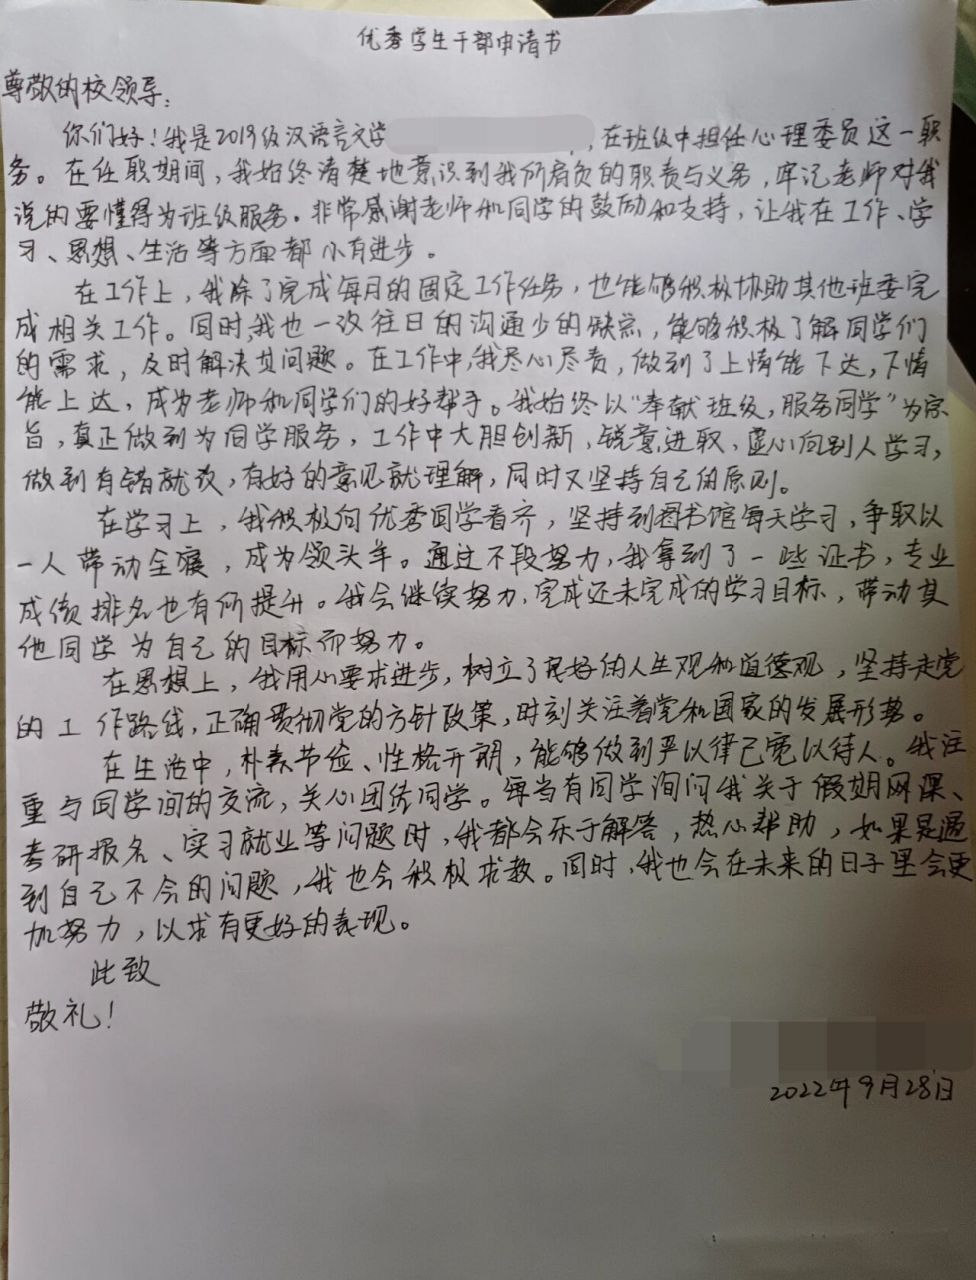 优秀学生干部申请书
尊敬的校领导:
你们好!我是2019级汉语言文学 ,在班级中担任心理委员这一职
务。在任职期间,我始终清楚地意识到我所肩负的职责与义务,牢记老师对我
说的要懂得为班级服务。非常感谢老师和同学的鼓励和支持,让我在工作、学
习、思想、生活等方面都小有进步。
在工作上,我除了完成每月的固定工作任务,也能够积极协助其他班委完
成相关工作。同时,我也一改往日的沟通少的缺点,能够积极了解同学们
的需求,及时解决其问题。在工作中,我尽心尽责,做到了上情能下达,下情
能上达,成为老师和同学们的好帮手。我始终以“奉献班级,服务同学”为宗
旨,真正做到为同学服务,工作中大胆创新,锐意进取,虚心向别人学习,
做到有错就改,有好的意见就理解,同时又坚持自己的原则。
在学习上,我积极向优秀同学看齐,坚持到图书馆每天学习,争取以
一人带动全寝,成为领头羊。通过不段努力,我拿到了一些证书,专业
成绩排名也有所提升。我会继续努力,完成还未完成的学习目标,带动其
他同学为自己的目标而努力。
在思想上,我用心要求进步,树立了良好的人生观和道德观,坚持走党
的工作路线,正确贯彻党的方针政策,时刻关注着党和国家的发展形势。
在生活中,朴素节俭、性格开朗,能够做到严以律己宽以待人。我注
重与同学间的交流,关心团结同学。每当有同学询问我关于假期网课、
考研报名、实习就业等问题时,我都会乐于解答,热心帮助,如果是遇
到自己不会的问题,我也会积极求教。同时,我也会在未来的日子里会更
加努力,以求有更好的表现。
此致
敬礼!
2022年9月28日